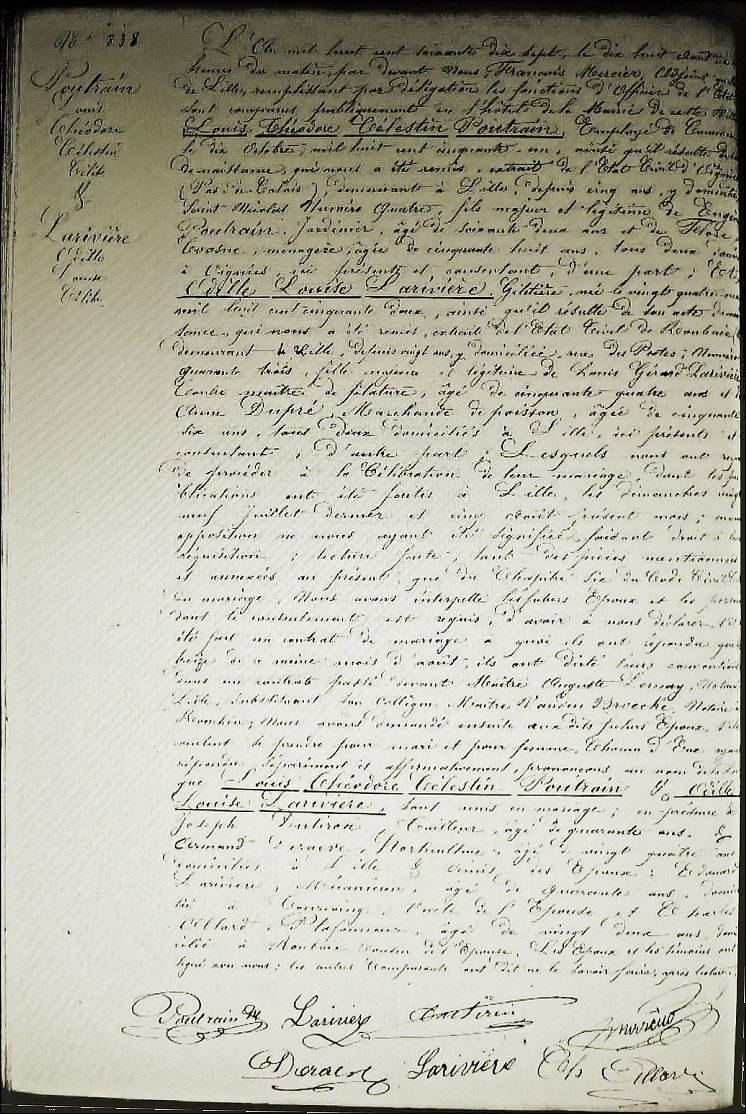 N° 838
Poutrain
Louis
Théodore
Célestin
Célib
&
Larivière
Odille
Louise
Célib
L'An mil huit cent soixante dix sept, le dix huit Août
heures du matin, par devant Nous, François Mercier, Adjoint
de Lille, remplissant par délégation les fonctions d'Officier de l'Etat
sont comparus publiquement en l'hôtel de la Mairie de cette Ville
Louis Théodore Célestin Poutrain, Employé de Commerce
le dix Octobre, mil huit cent cinquante un, ainsi qu'il résulte de
de naissance, qui nous a été remis, extrait de l'Etat Civil d'Oignies
(Pas de Calais), demeurant à Lille, depuis cinq ans, y domicilié
Saint Nicolas Numéro Quatre, fils majeur et légitime de
Poutrain, Jardinier, âgé de soixante deux ans et de
ménagère, âgée de cinquante huit ans, tous deux
à Oignies, ici présents et consentant, d'une part ; Et
Odille Louise Larivière, Giletière, née le vingt quatre
mil huit cent cinquante deux, ainsi qu'il résulte de son acte de
sance, qui nous a été remis, extrait de l'Etat Civil de Roubaix
demeurant à Lille, depuis vingt ans, y domiciliée, rue des Postes, Numéro
quarante trois, fille majeure et légitime de Louis Gérard Larivière
Contre maître de filature, âgé de cinquante quatre ans et
Dupré, Marchande de poisson, âgée de cinquante
six ans, tous deux domiciliés à Lille, ici présents et
consentant, d'autre part ; Lesquels nous ont
de procéder à la Célébration de leur mariage, dont les pu
blications ont été faites à Lille, les dimanches vingt
neuf Juillet dernier et cinq Août présent mois ;
opposition ne nous ayant été signifiée, faisant droit à leur
réquisition ; lecture faite, tant des pièces mentionnées
et annexées au présent, que du Chapitre Six du Code Civil
du mariage, Nous avons interpellé les futurs Epoux et les
dont le consentement est requis, d'avoir à nous déclarer s'il
été fait un contrat de mariage à quoi ils ont répondu que
treize de ce même mois d'août, ils ont dicté leurs conventions
dans un contrat passé devant Maître Auguste Notaire
Lille, substituant son Collègue Maître Notaire à
Nous avons demandé ensuite aux dits futurs Epoux, s'ils
veulent se prendre pour mari et pour femme, Chacun d'Eux ayant
répondu, séparément et affirmativement, prononçons au nom de la loi
que Louis Théodore Célestin Poutrain & Odille
Louise Larivière, sont unis en mariage ; en présence de
Joseph Tailleur, âgé de quarante ans, &
Armand Horticulteur, âgé de vingt quatre ans
domiciliés à Lille & amis des Epoux ; Edouard
Larivière, Mécanicien, âgé de quarante ans,
lié à Tourcoing, Oncle de l'Epouse, & Charles
Plafonneur, âgé de vingt deux ans, domi
cilié à Roubaix, Cousin de l'Epouse. Les Epoux et les témoins ont
signé avec nous ; les autres Comparants ont dit ne le savoir faire, après lecture.
Poutrain Larivière
Larivière Ch